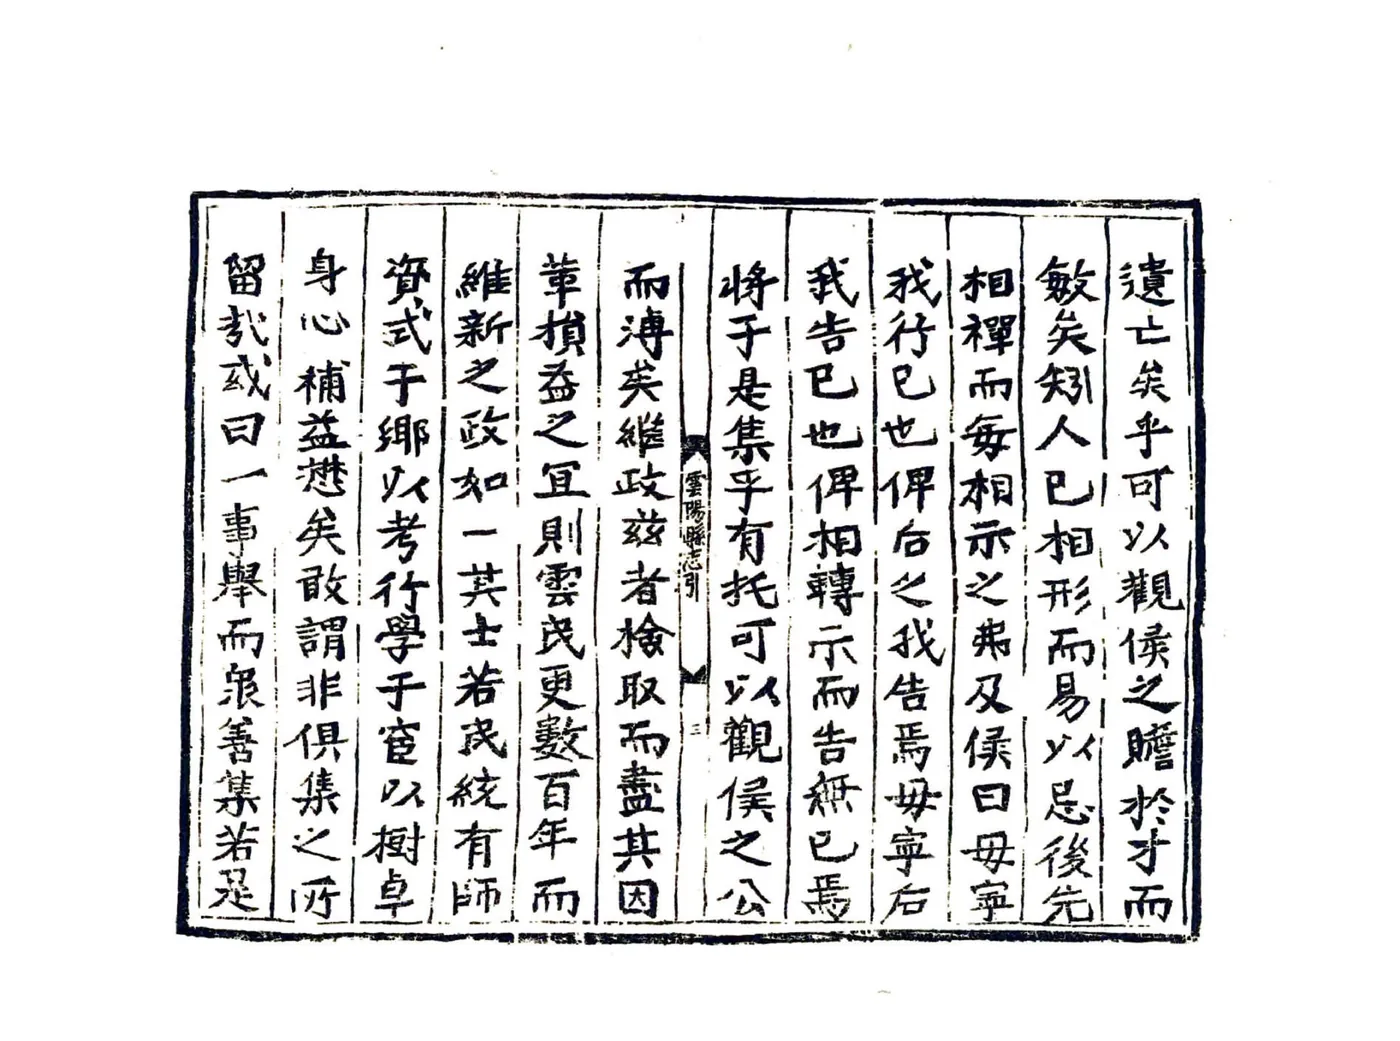 遺亡矣乎可以觀侯之贍於才而
敏矣矧人已相形而易以忌後先
相禪而每相示之弗及侯曰毋寧
我行已也俾后之我告焉毋寧右
我告已也俾相轉示而告無已焉
將于是集乎有托可以觀侯之公
而溥矣維政玆者撿取而盡其因
革損益之冝則雲民更數百年而
維新之政如一其士若民統有師
資式于鄉以考行學于宦以樹卓
身心補益懋矣敢謂非俱集之所
留㢤或曰一事舉而衆善集若是
雲陽縣志引
三